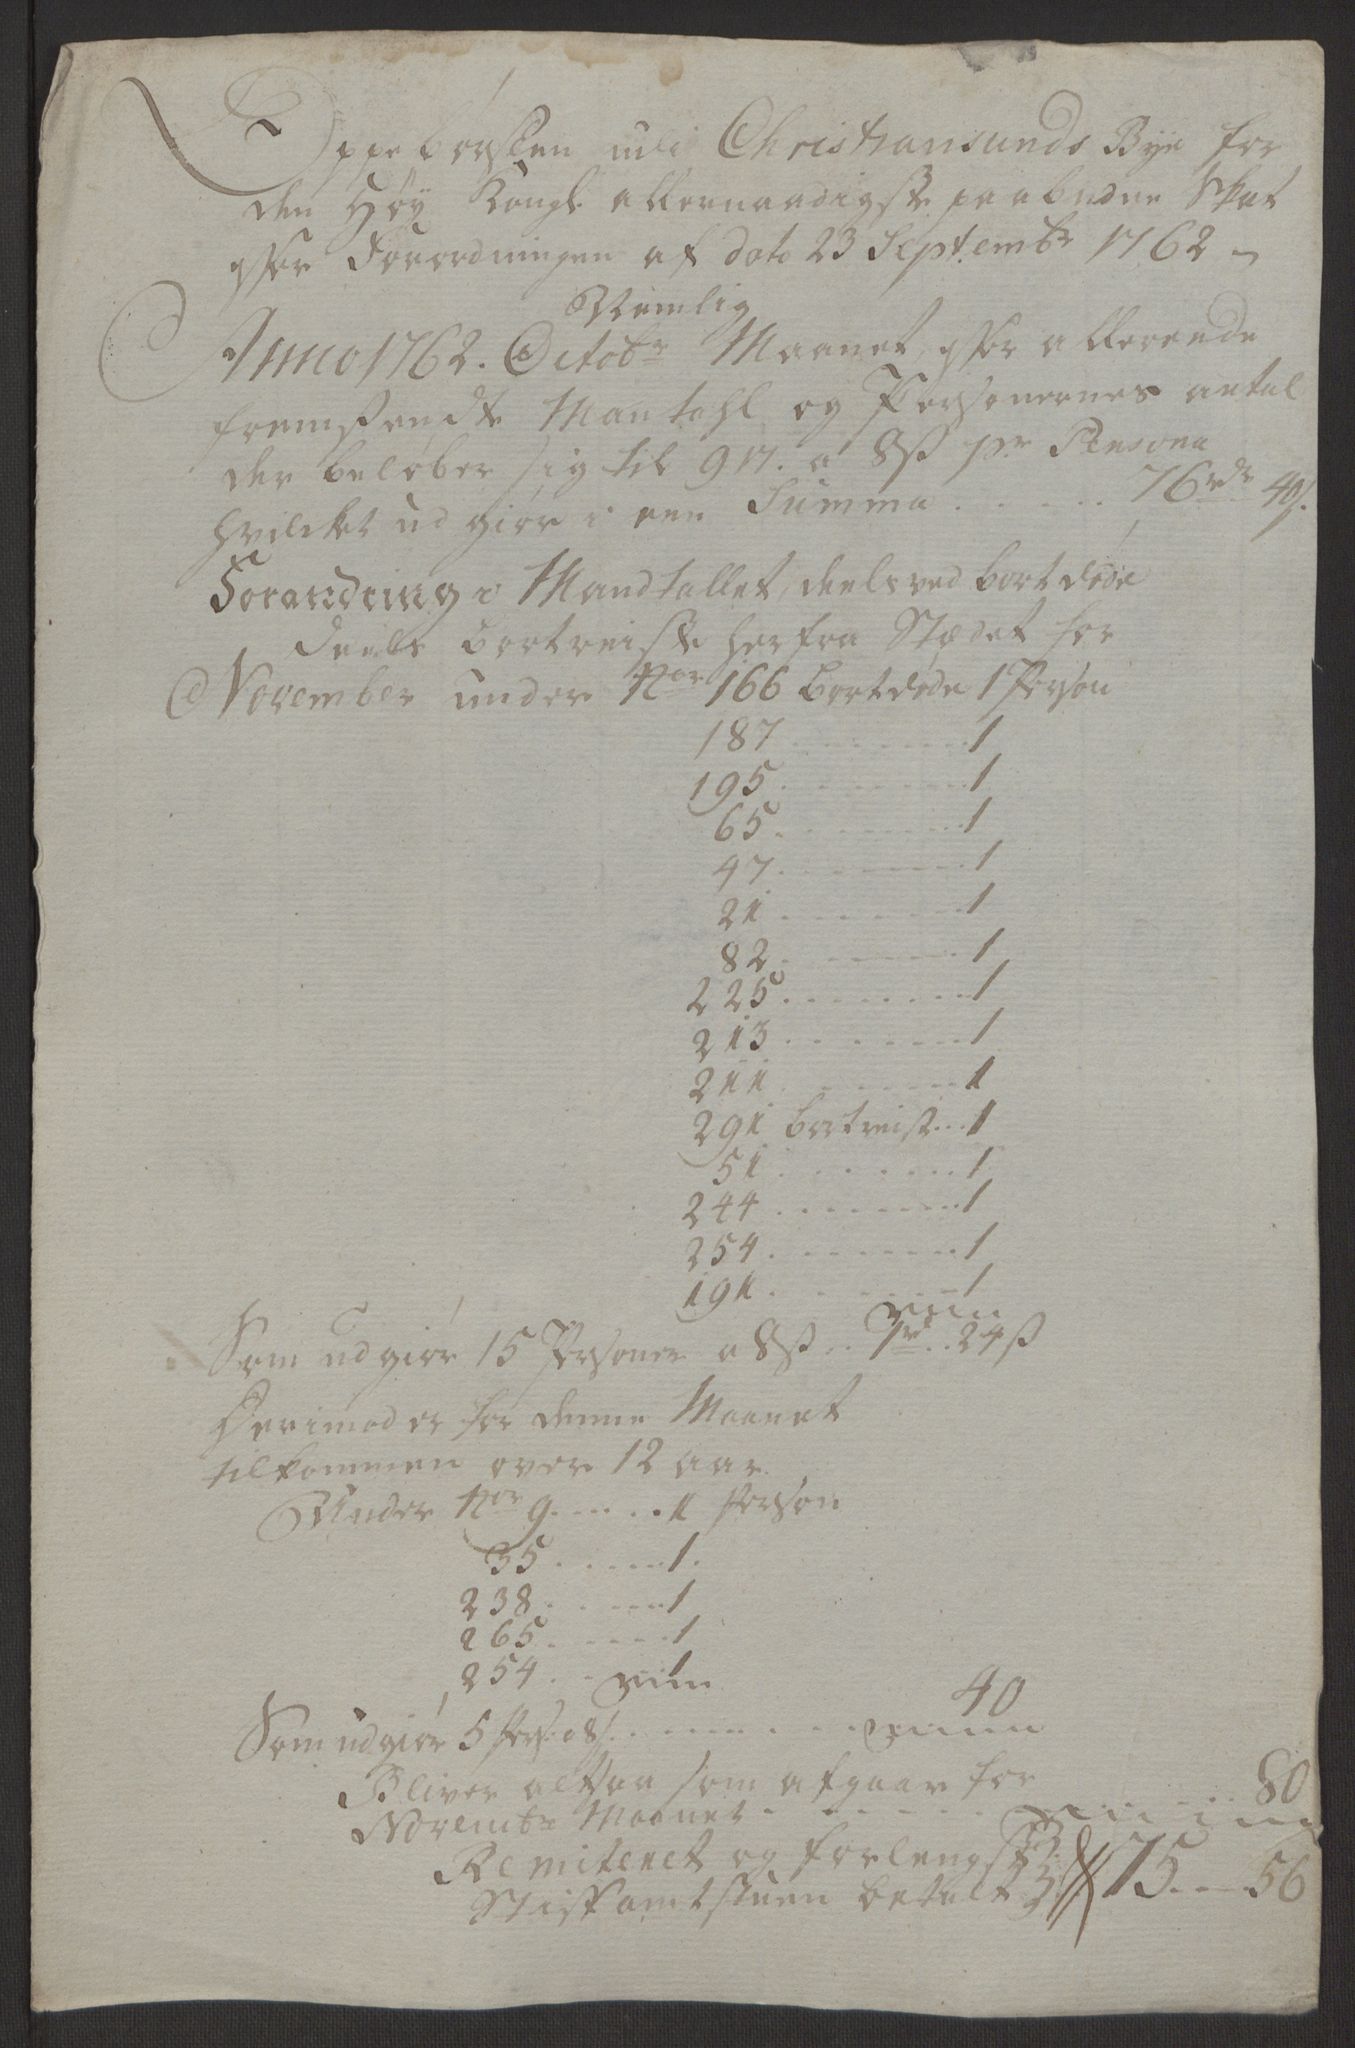 Oppebørslen udi Christiansunds Bye for
den Høy Kongl. allernaadigste paabudne Skat
efter Forordningen af dato 23 Septembr 1762
Nemlig
Anno 1762. Octobr Maanet, efter allerende
fremsendte Mantahl og Personernes antal
der beløber sig til 917. a 8ß pr Persona
hvilcket udgiør i een Summa . . . . . 76rdr 40ß.
Forandring i Mandtallet, deels ved bortdøde
deels bortreiste herfra Stædet for
November under Nor 166 bortdøde 1 Person
187 . . . . . . . . 1
195 . . . . . . . . 1
65 . . . . . . . . 1
47 . . . . . . . . 1
21 . . . . . . . . 1
82 . . . . . . . . 1
225 . . . . . . . . 1
213 . . . . . . . . 1
211 . . . . . . . . 1
291 bortreist . . . 1
51 . . . . . . . . 1
244 . . . . . . . . 1
254 . . . . . . . . 1
191 . . . . . . . . 1
Som udgiør 15 Personer a 8ß . . 1rd . . 24ß
Derimod er for denne Maanet
tilkommen over 12 aar
Under Nor 9 . . . . . 1 Person
35 . . . . . 1.
238 . . . . . 1
265 . . . . . 1
254 . . . . . 1
Som udgiør 5 Pers. a 8ß . . . . . . . . 40
Bliver altsaa som afgaar for
Novembr Maanet . . . . . . . . . . 80
Remiteret og forlengst
Stiftamtstuen betalt 75 . . — 56